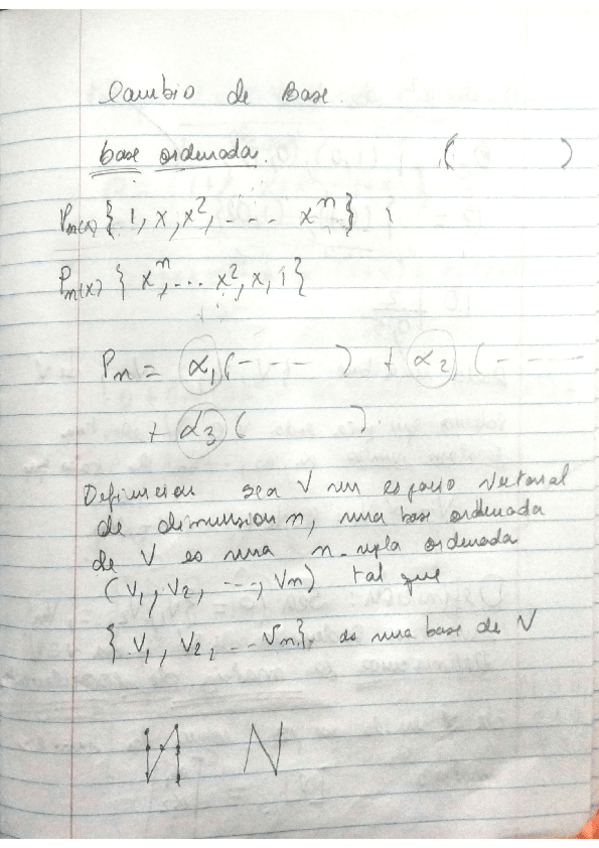 Cambio de Base.
base ordenada. ( )
Pn(x) { 1, x, x², ---- xⁿ }
Pn(x) { xⁿ, ... x², x, 1 }
Pn = α₁ (---- ) + α₂ (----
+ α₃ ( )
Definicion sea V un espacio Vectorial
de dimension n, una base ordenada
de V es una n-upla ordenada
(V₁, V₂, ---, Vn) tal que
{ V₁, V₂, -- Vn }, es una base de V
И N